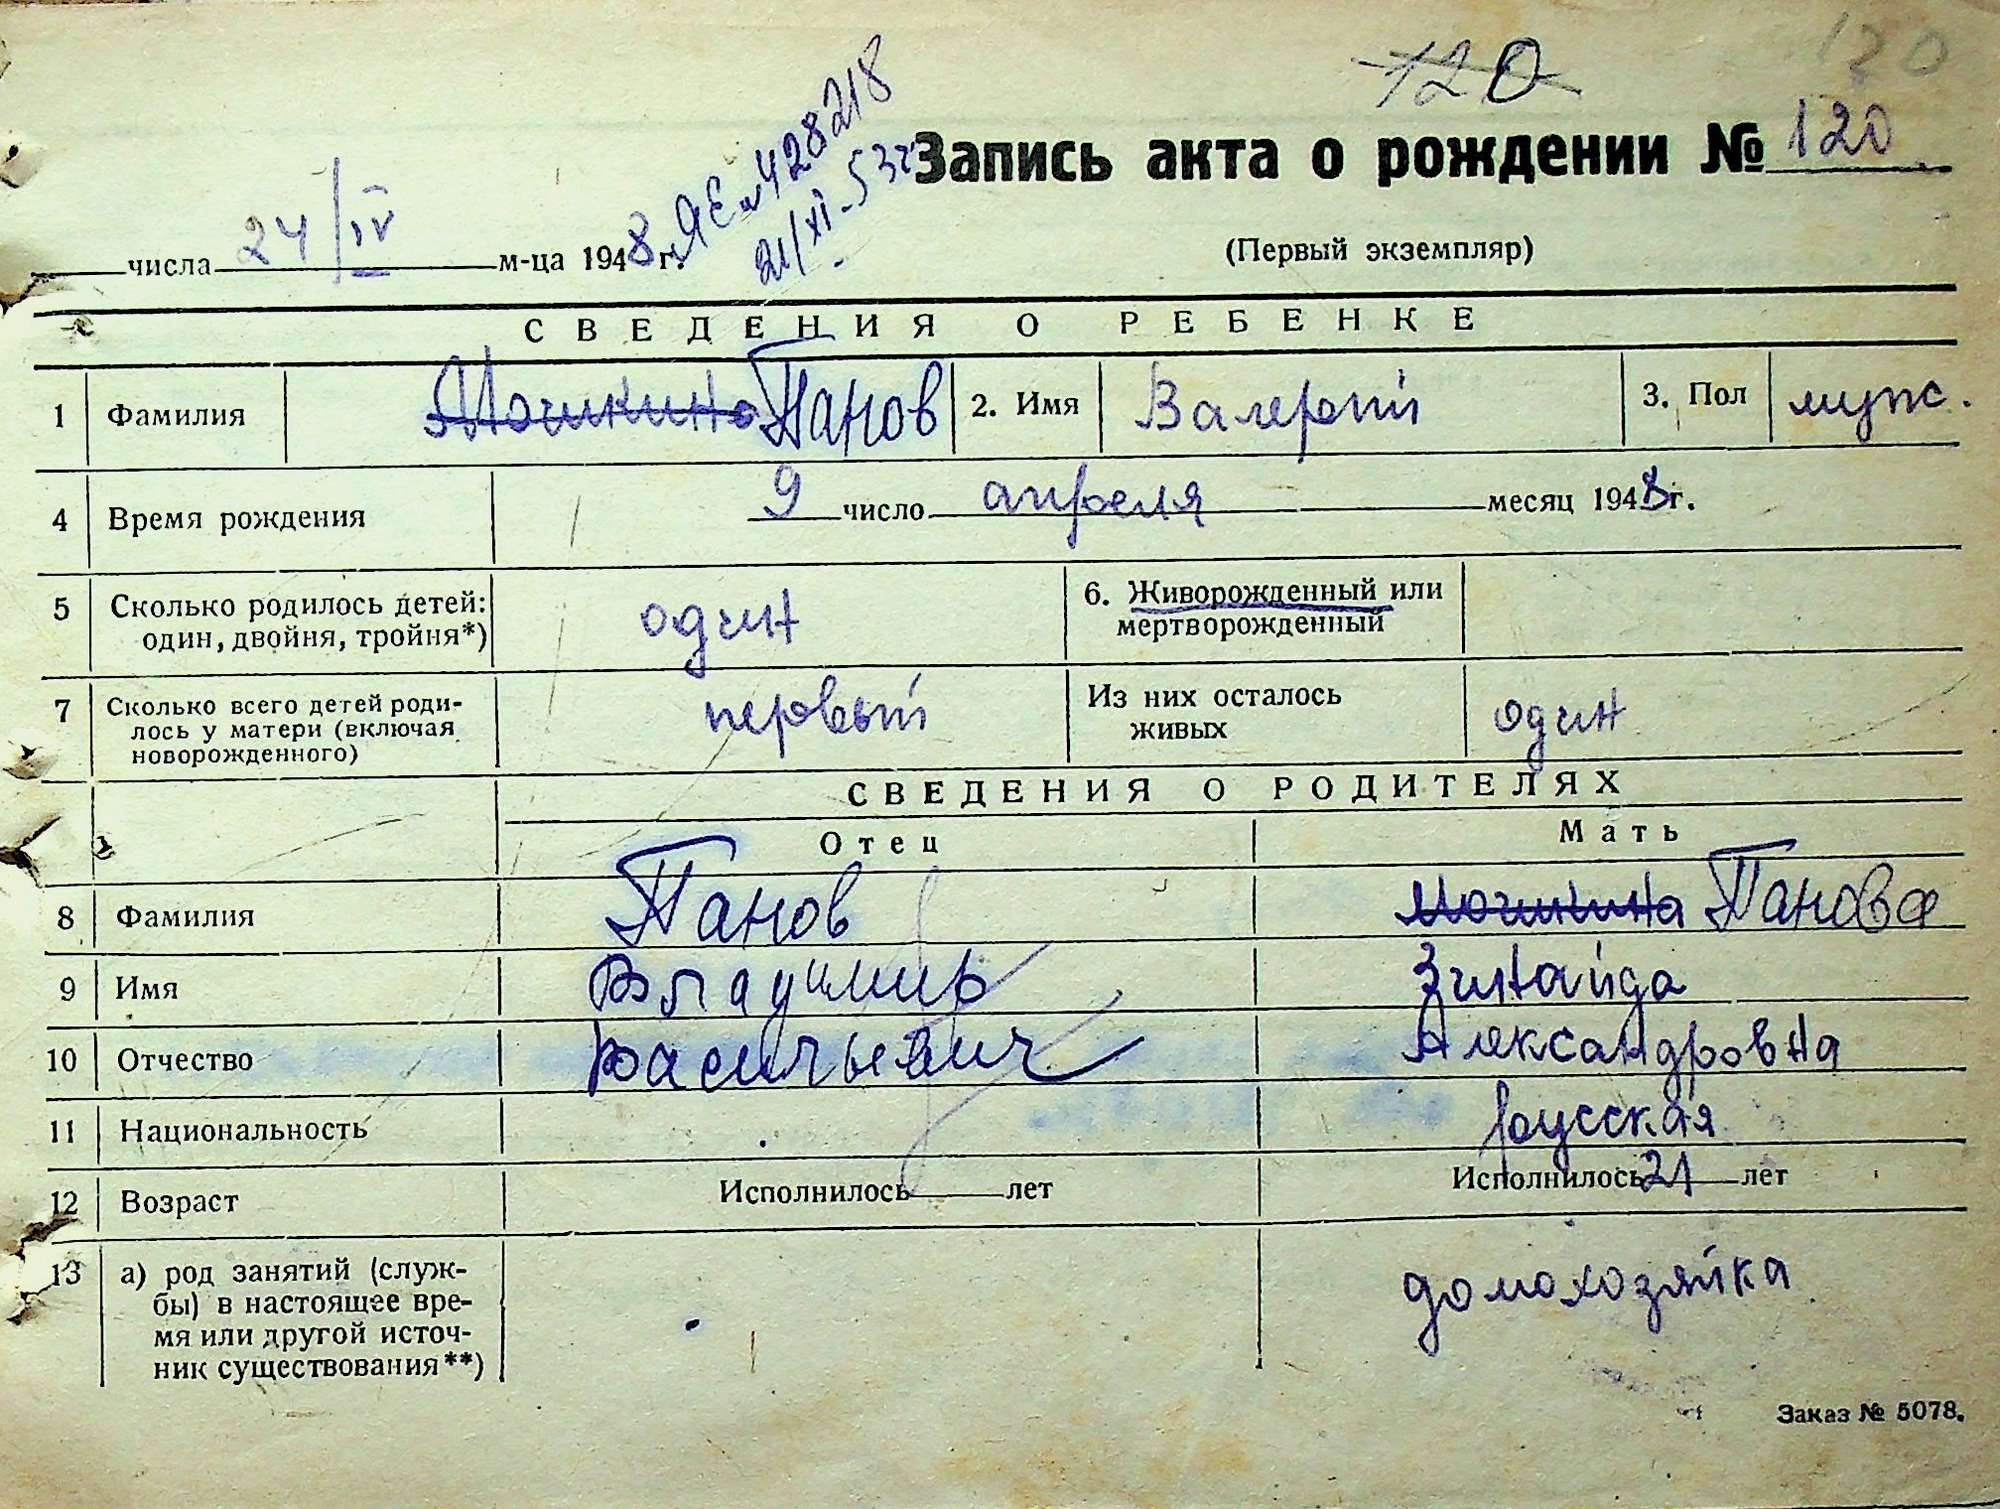 120
120
Запись акта о рождении № 120
24/IV числа м-ца 1948 г. ЯЕ № 428218
21/XI-53г
(Первый экземпляр)
СВЕДЕНИЯ О РЕБЕНКЕ
1 Фамилия Мочкина Панов 2. Имя Валерий 3. Пол муж.
4 Время рождения 9 число апреля месяц 1948 г.
5 Сколько родилось детей: один 6. Живорожденный или
один, двойня, тройня*) мертворожденный
7 Сколько всего детей роди- первый Из них осталось один
лось у матери (включая живых
новорожденного)
СВЕДЕНИЯ О РОДИТЕЛЯХ
Отец Мать
8 Фамилия Панов Мочкина Панова
9 Имя Владимир Зинаида
10 Отчество Васильевич Александровна
11 Национальность русская
12 Возраст Исполнилось лет Исполнилось 21 лет
13 а) род занятий (служ- домохозяйка
бы) в настоящее вре-
мя или другой источ-
ник существования**)
Заказ № 5078.